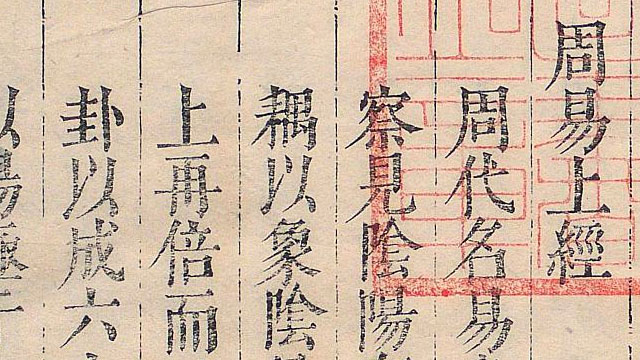 周易上經
周代名易
察見陰陽
耦以象陰
上再倍而
卦以成六
以